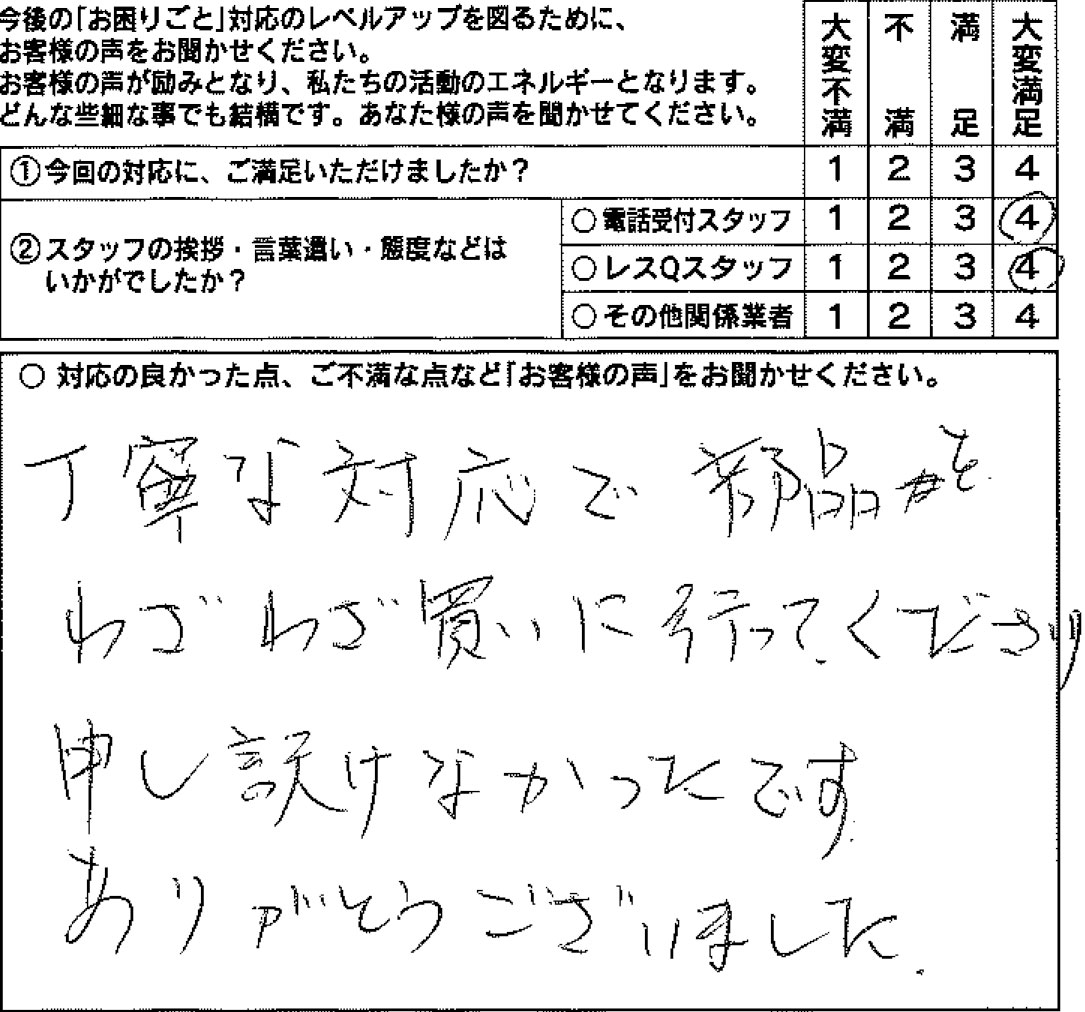 今後の「お困りごと」対応のレベルアップを図るために、
お客様の声をお聞かせください。
お客様の声が励みとなり、私たちの活動のエネルギーとなります。
どんな些細な事でも結構です。あなた様の声を聞かせてください。
大変不満 不満 満足 大変満足
①今回の対応に、ご満足いただけましたか? 1 2 3 4
②スタッフの挨拶・言葉遣い・態度などは
いかがでしたか?
○電話受付スタッフ 1 2 3 4
○レスQスタッフ 1 2 3 4
○その他関係業者 1 2 3 4
○ 対応の良かった点、ご不満な点など「お客様の声」をお聞かせください。
丁寧な対応で 部品を
わざわざ買いに行ってくださり
申し訳けなかったです
ありがとうございました.